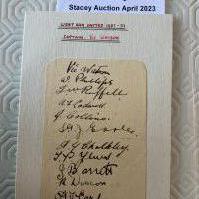 Stacey Auction April 2023
WEST HAM UNITED 1931-32
CAPTAIN. VIC WATSON
Vic Watson
W Phillips
F W Ruffell
A E Cadwell
J Collins
S H J Earle
A G Chalkley
T P Yews
J Barrett